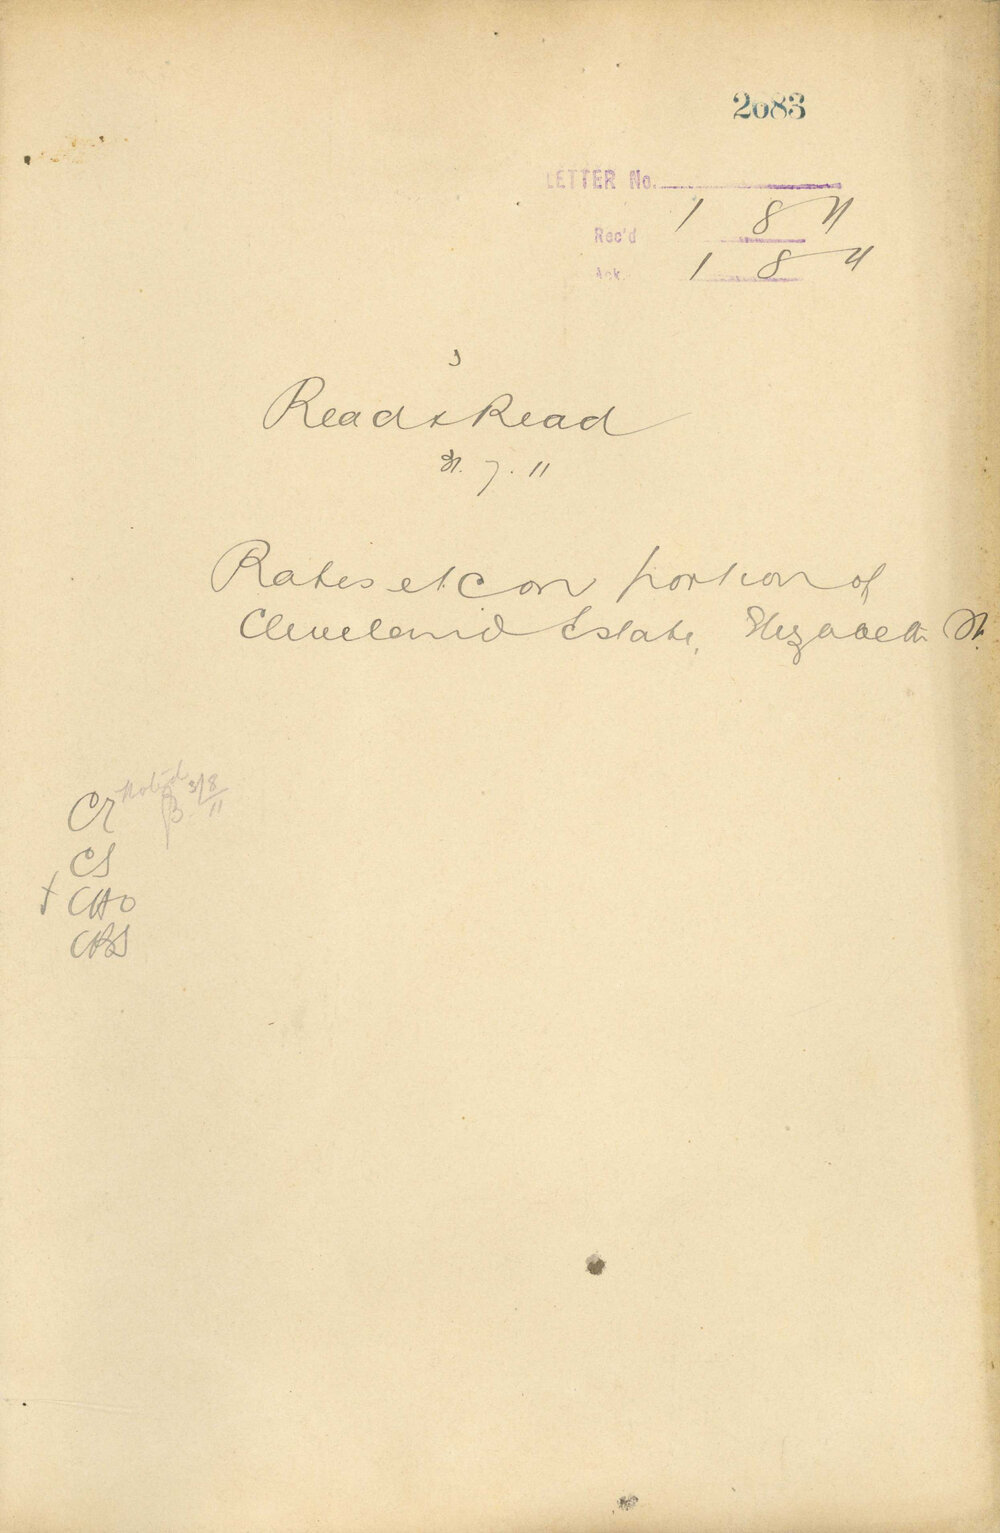 2083
LETTER No.
Rec'd 1 8 11
Ack. 1 8 11
s
Read & Read
31. 7. 11
Rates etc on portion of
Cleveland Estate, Elizabeth St.
CR Noted 3/8/11
CS
CHO
CBS